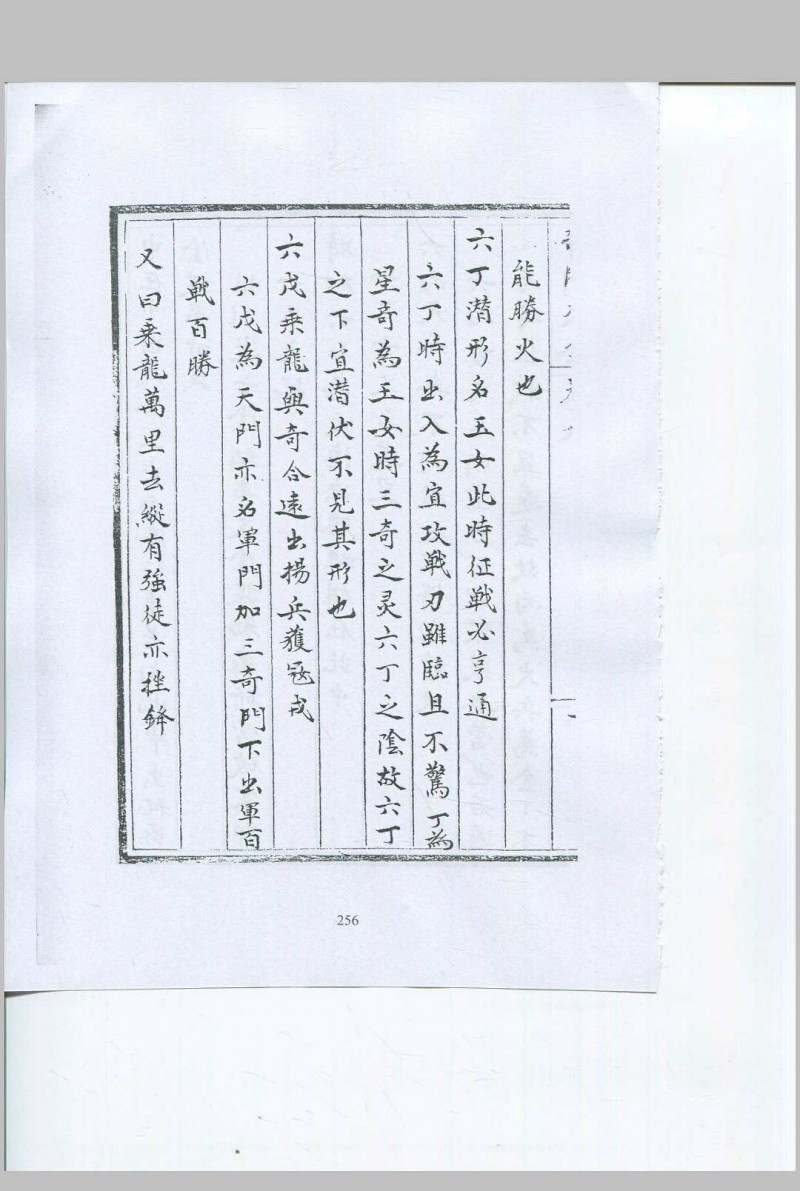 能勝火也
六丁潜形名玉女此時征戦必亨通
六丁時出入為宜攻戦刃雖臨且不驚丁為
星奇為玉女時三奇之灵六丁之陰故六丁
之下宜潜伏不見其形也
六戊乗龍與奇合遠出揚兵獲冦戎
六戊為天門亦名軍門加三奇門下出軍百
戦百勝
又曰乗龍萬里去縱有強徒亦挫鋒
256